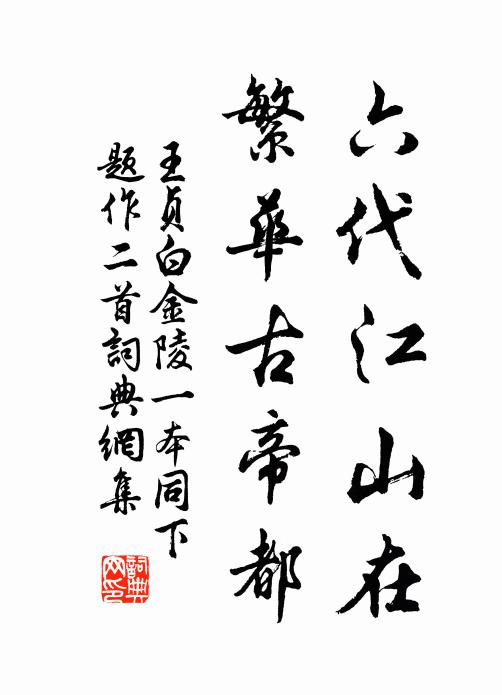 六代江山在
繁華古帝都
王貞白金陵一本同下
題作二首詞典網集
詞典網印